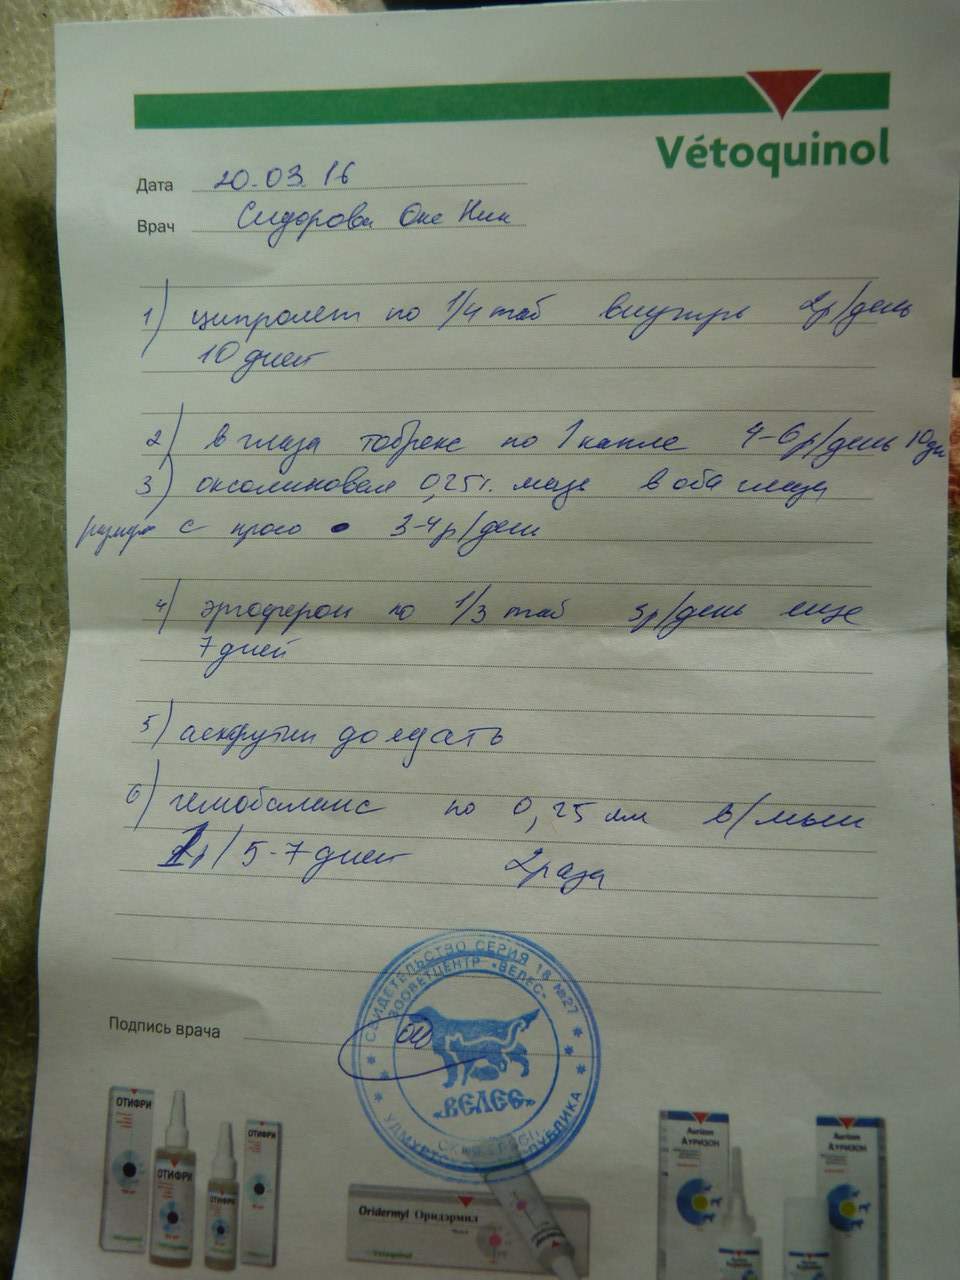 Vétoquinol
Дата 20.03.16
Врач Сидорова Окс Ник
1) ципролет по 1/4 таб внутрь 2р/день
10 дней
2) в глаза тобрекс по 1 капле 4-6р/день 10дн
3) оксолиновая 0,25г. мазь в оба глаза
размер с просо 3-4р/день
4) эргоферон по 1/3 таб 3р/день еще
7 дней
5) аскрутин доедать
6) гемобаланс по 0,25 мл в/мыш
1р/5-7дней 2раза
СВИДЕТЕЛЬСТВО СЕРИЯ 18 №27
ЗООВЕТЦЕНТР «ВЕЛЕС»
«ВЕЛЕС»
Подпись врача
ОТИФРИ
ОТИФРИ
ОТИФРИ
ОТИФРИ
Oridermyl Оридермил
Vetoquinol
Aurizon
Ауризон
Aurizon
Ауризон